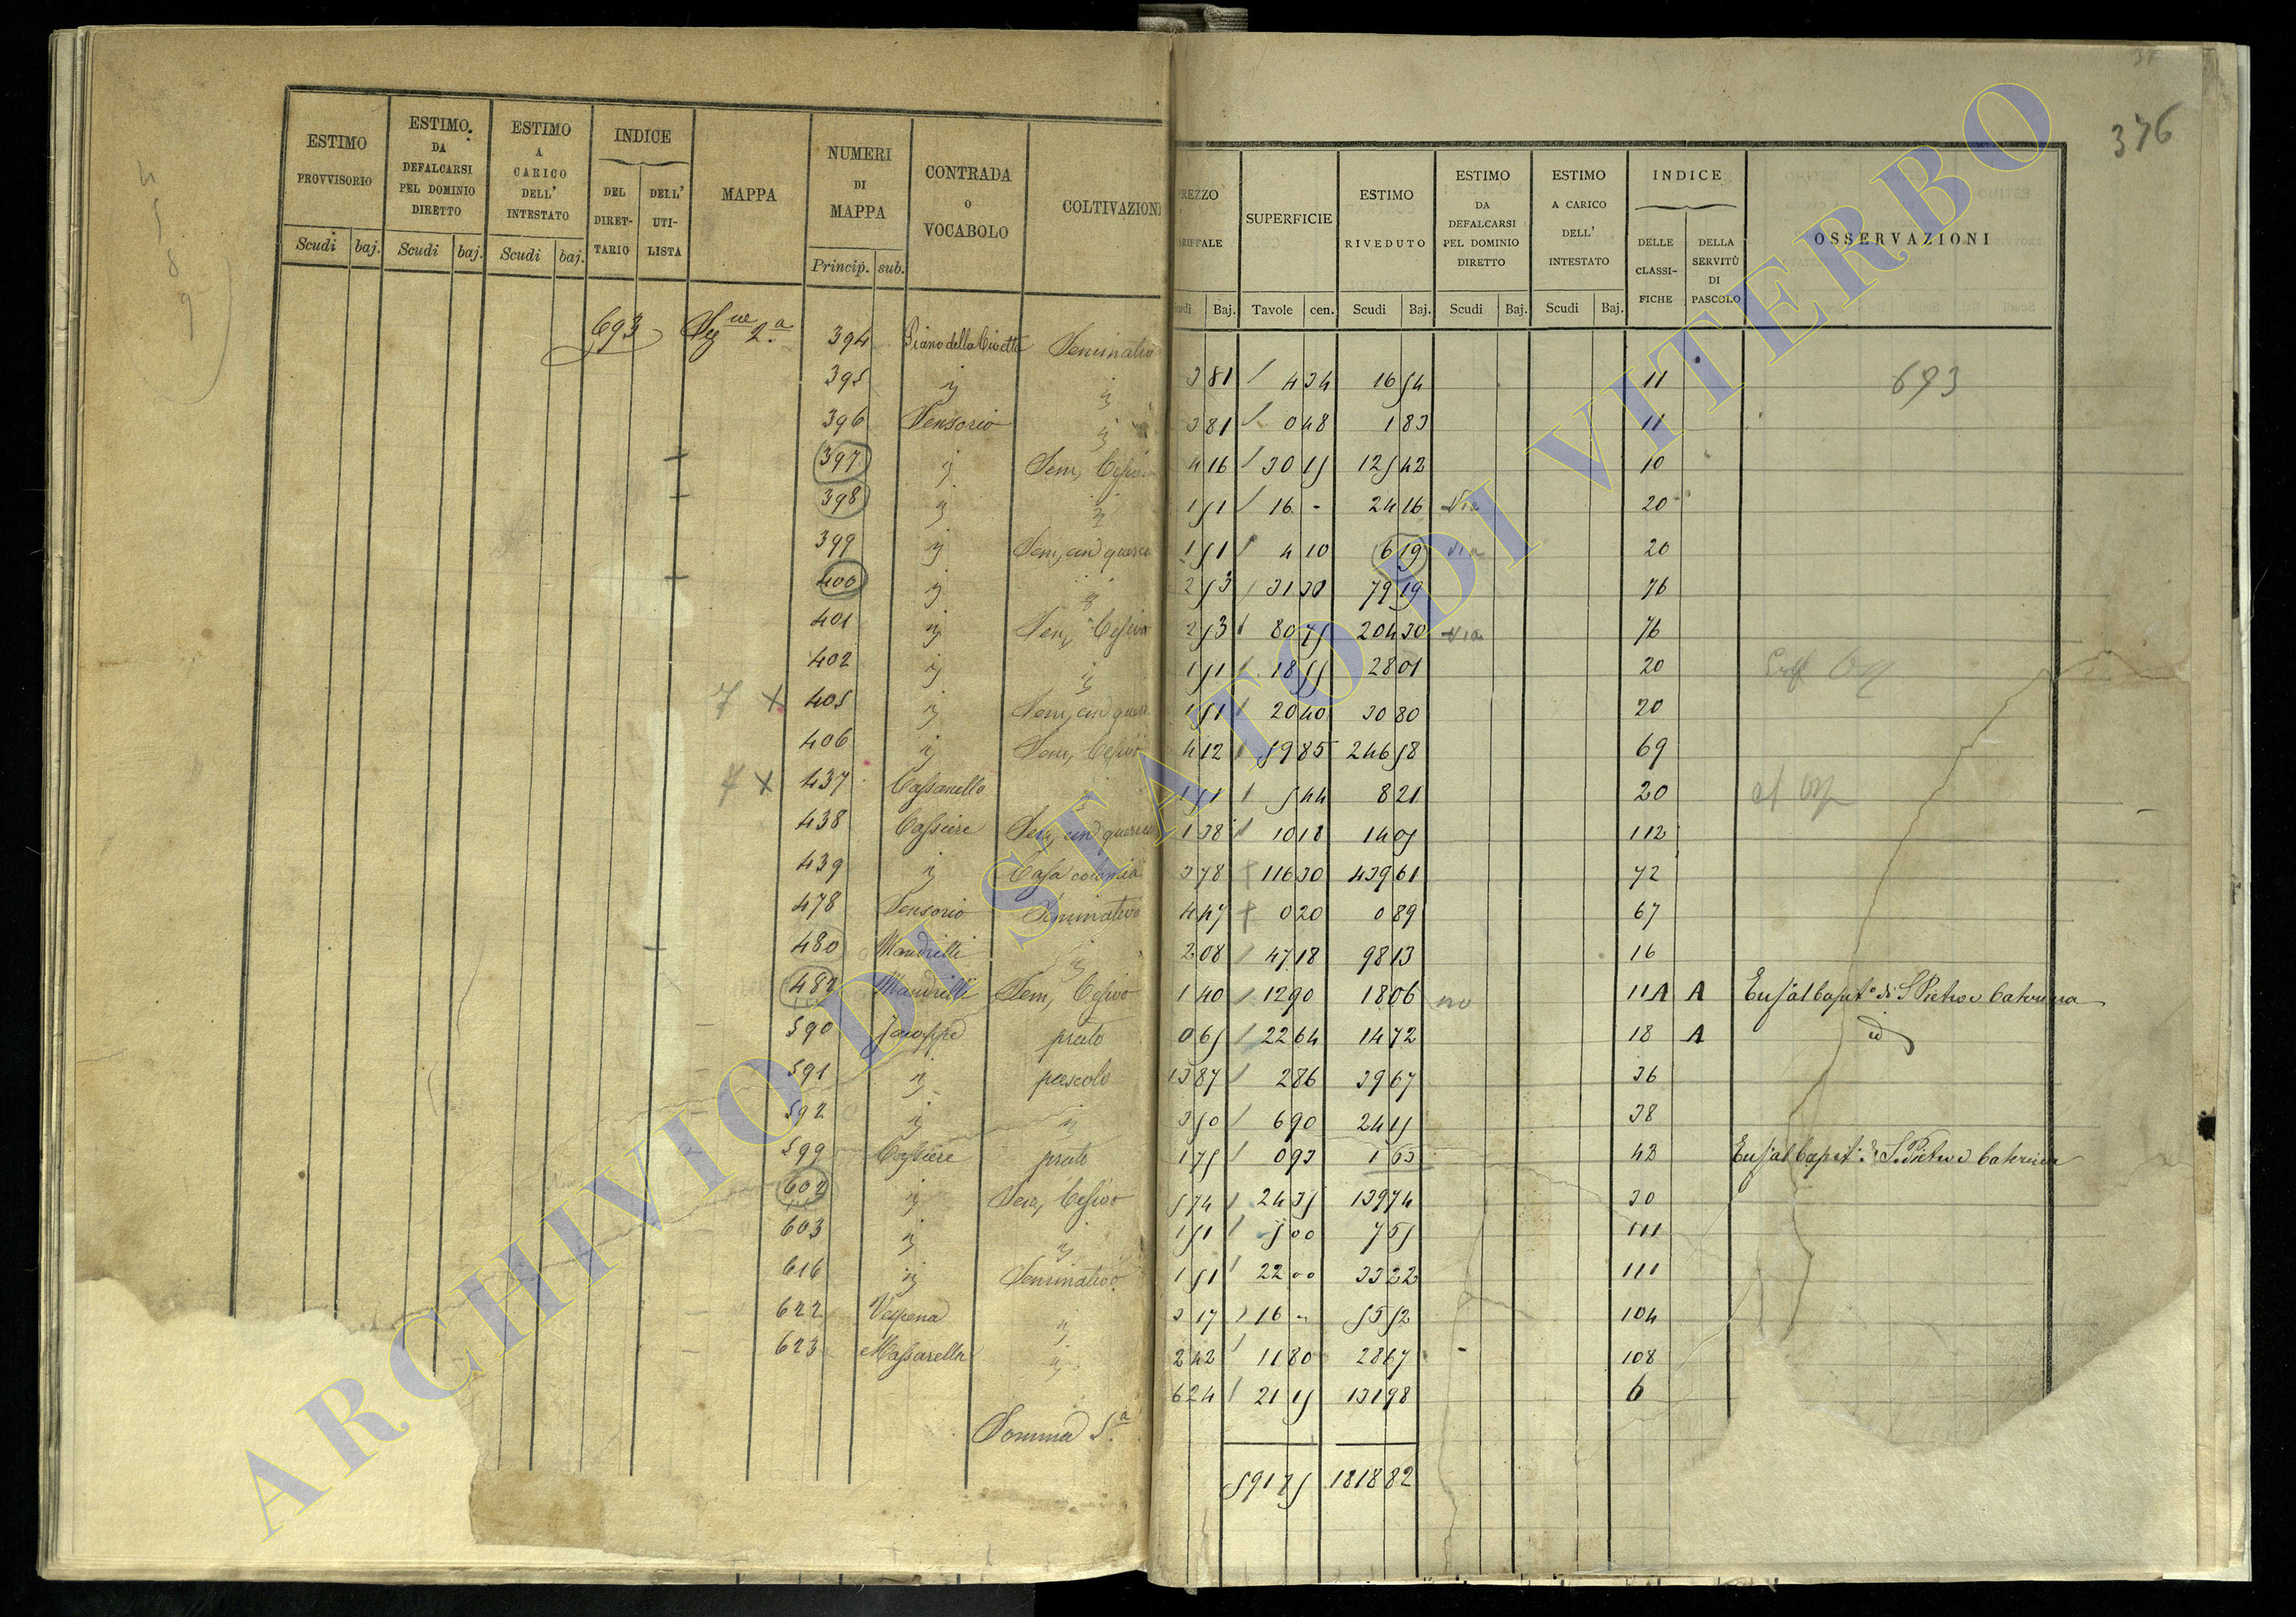 376
ESTIMO PROVVISORIO
ESTIMO DA DEFALCARSI PEL DOMINIO DIRETTO
ESTIMO A CARICO DELL' INTESTATO
INDICE
DEL DIRET-TARIO
DELL' UTI-LISTA
MAPPA
NUMERI DI MAPPA
CONTRADA o VOCABOLO
COLTIVAZION
Scudi baj. Scudi baj. Scudi baj.
Princip. sub.
693 Seg.ue 2.a 394 Piano della Civetta Seminativo
395 id id
396 Sensorio id
397 id Sem, Cesivo
398 id id
399 id Sem, cud querce
400 id id
401 id Sem, Cesivo
402 id id
7 x 405 id Sem, cud querc
406 id Sem, Cesivo
7 x 437 Cassanello
438 Cassiere Sem, cud querce
439 id Casa colonica
478 Sensorio Seminativo
480 Mandrilli id
482 Mandrilli Sem, Cesivo
590 prato
591 id pascolo
592 id id
599 Cassiere prato
602 id Sem, Cesivo
603 id id
616 id Seminativo
622 Vespena id
623 Massarella id
Somma S.a
PREZZO TARIFFALE
SUPERFICIE
ESTIMO RIVEDUTO
ESTIMO DA DEFALCARSI PEL DOMINIO DIRETTO
ESTIMO A CARICO DELL' INTESTATO
INDICE
DELLE CLASSI-FICHE
DELLA SERVITÙ DI PASCOLO
OSSERVAZIONI
Scudi Baj. Tavole cen. Scudi Baj. Scudi Baj. Scudi Baj.
3 81 4 34 16 54 11 693
3 81 0 48 1 83 11
4 16 30 15 125 42 10
1 51 16 - 24 16 Via 20
1 51 4 10 6 19 Via 20
2 53 31 30 79 19 76
2 53 80 75 204 30 Via 76
1 51 18 55 28 01 20
1 51 20 40 30 80 20
4 12 59 85 246 58 69
1 51 5 44 8 21 20
1 38 10 18 14 05 112
3 78 116 30 439 61 72
4 47 0 20 0 89 67
2 08 47 18 98 13 16
1 40 12 90 18 06 no 11A A Enf. al Capit.o di S. Pietro e Caterina
0 65 22 64 14 72 18 A id
13 87 2 86 39 67 36
3 50 6 90 24 15 38
1 75 0 93 1 63 43 Enf. al Capit.o di S. Pietro e Caterina
5 74 24 35 139 74 30
1 51 5 00 7 55 111
1 51 22 00 33 22 111
3 17 16 - 55 52 104
2 42 11 80 28 67 108
6 24 21 15 131 98 6
591 75 1818 82
ARCHIVIO DI STATO DI VITERBO